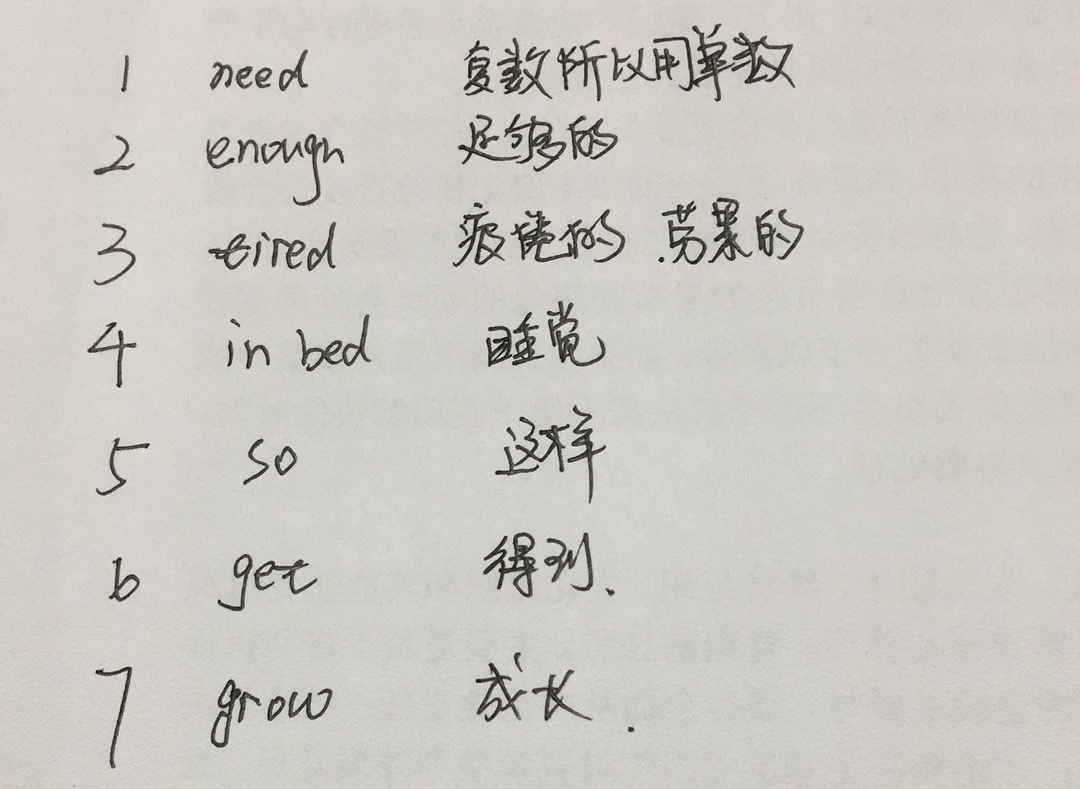 1 need 复数所以用单数
2 enough 足够的
3 tired 疲倦的.劳累的
4 in bed 睡觉
5 so 这样
6 get 得到.
7 grow 成长.